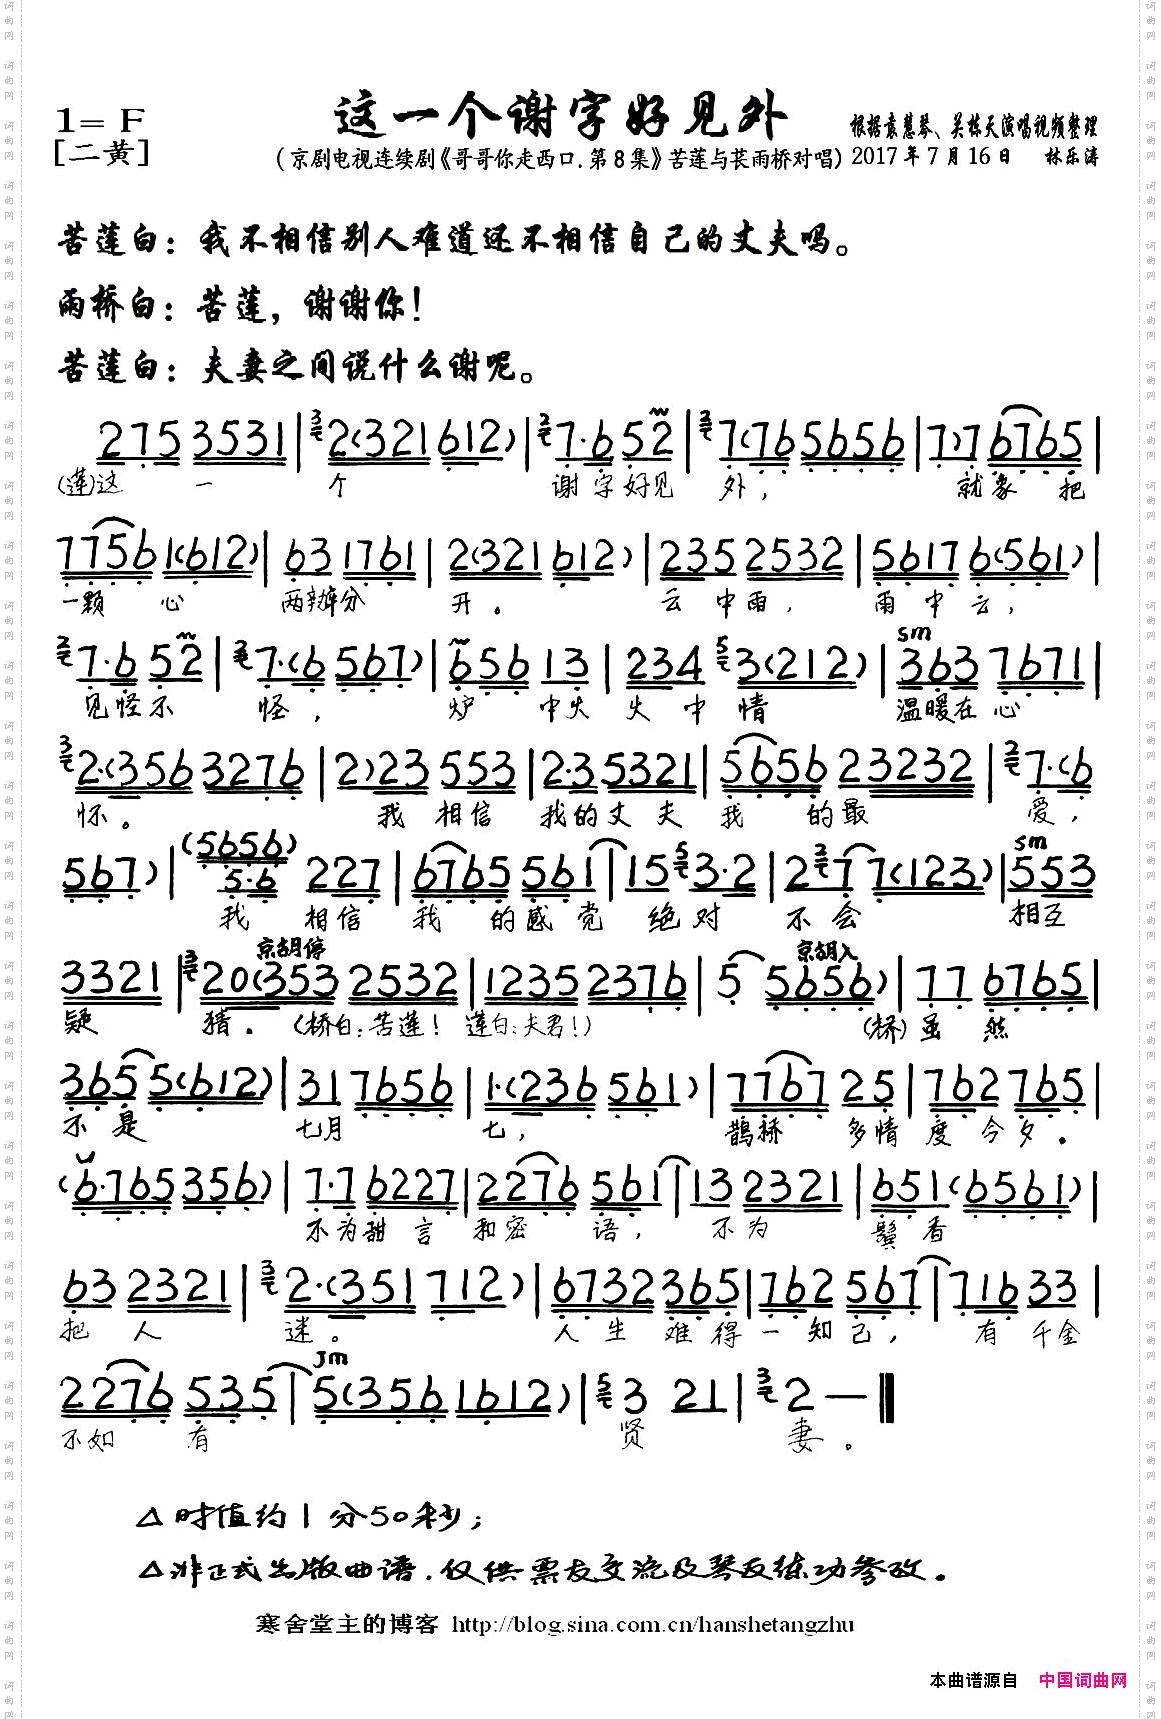 这一个谢字好见外
1= F
[二黄]
(京剧电视连续剧《哥哥你走西口.第8集》苦莲与苌雨桥对唱)
根据袁慧琴、关栋天演唱视频整理
2017年7月16日 林乐涛
苦莲白：我不相信别人难道还不相信自己的丈夫吗。
雨桥白：苦莲，谢谢你！
苦莲白：夫妻之间说什么谢呢。
275 3531 | 2(321 612) | 7·6 52 | 7(76 5656 | 7)7 6765 |
(莲)这 一 个 谢字好见 外， 就象 把
7756 1(612) | 63 1761 | 2(321 612) | 235 2532 | 5617 6(561) |
一颗 心 两瓣分 开。 云中雨， 雨中云，
7·6 52 | 7·(6 567) | 656 13 | 234 3(212) | 363 7671 |
见怪不 怪， 炉 中火 火中情 温暖在心
sm
2·(356 3276 | 2)23 553 | 2·35321 | 5656 23232 | 7·(6
怀。 我 相信 我的丈夫 我 的最 爱，
567) | (5656) 5·6 227 | 6765 561 | 15 3·2 | 27 7(123) | 553
我 相信 我 的感觉 绝对 不会 相互
sm
京胡停 京胡入
3321 | 20(353 2532 | 1235 2376 | 5 5656) | 77 6765 |
疑 猜。(桥白：苦莲！ 莲白：夫君！) (桥)虽 然
365 5(612) | 31 7656 | 1·(236 561) | 7767 25 | 762 765 |
不是 七月 七， 鹊桥 多情度今夕。
(6·765 356) | 7·7 6227 | 2276 561 | 13 2321 | 651 (6561) |
不为甜言 和密 语， 不为 鬓香
63 2321 | 2·(351 712) | 6732 365 | 762 567 | 716 33 |
把人 迷。 人生 难得一知己， 有 千金
Jm
2276 535 | 5(356 1612) | 3 21 | 2 — ‖
不如 有 贤 妻。
△时值约1分50秒；
△非正式出版曲谱.仅供票友交流及琴友练功参考。
寒舍堂主的博客 http://blog.sina.com.cn/hanshetangzhu
本曲谱源自 中国词曲网